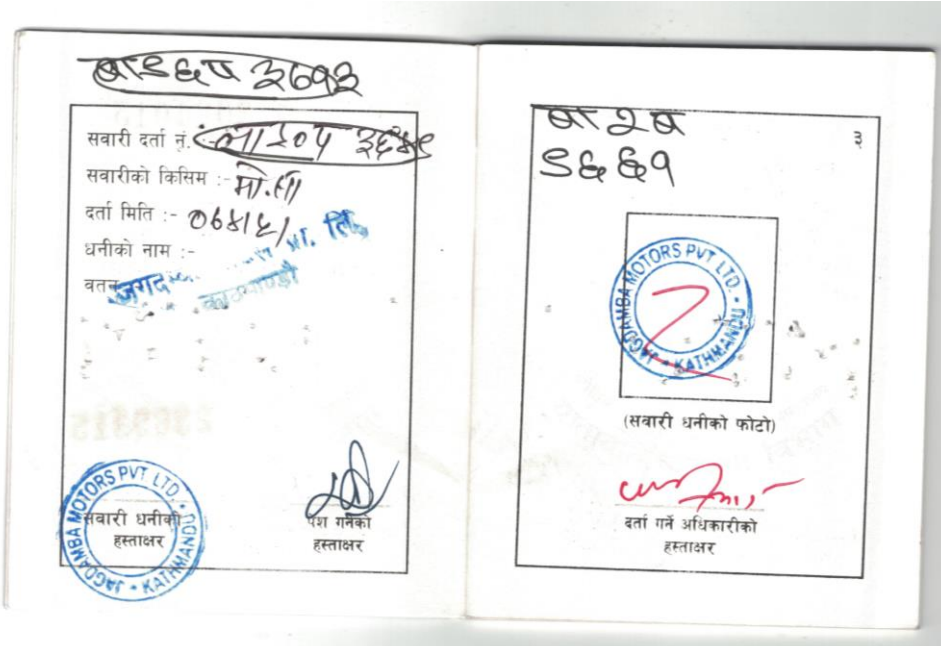 बा ९६ प ३७१३
सवारी दर्ता नं.:- लु १०५ ३६४९
सवारीको किसिम :- मो.सा
दर्ता मिति :- ०६४/६/
धनीको नाम :-
वतन
जगद प्रा. लि.
काठमाण्डौ
JAGDAMBA MOTORS PVT LTD. • KATHMANDU
सवारी धनीको
हस्ताक्षर
पेश गर्नेको
हस्ताक्षर
बा २ ब
९६ ६१
३
JAGDAMBA MOTORS PVT LTD. • KATHMANDU
(सवारी धनीको फोटो)
दर्ता गर्ने अधिकारीको
हस्ताक्षर